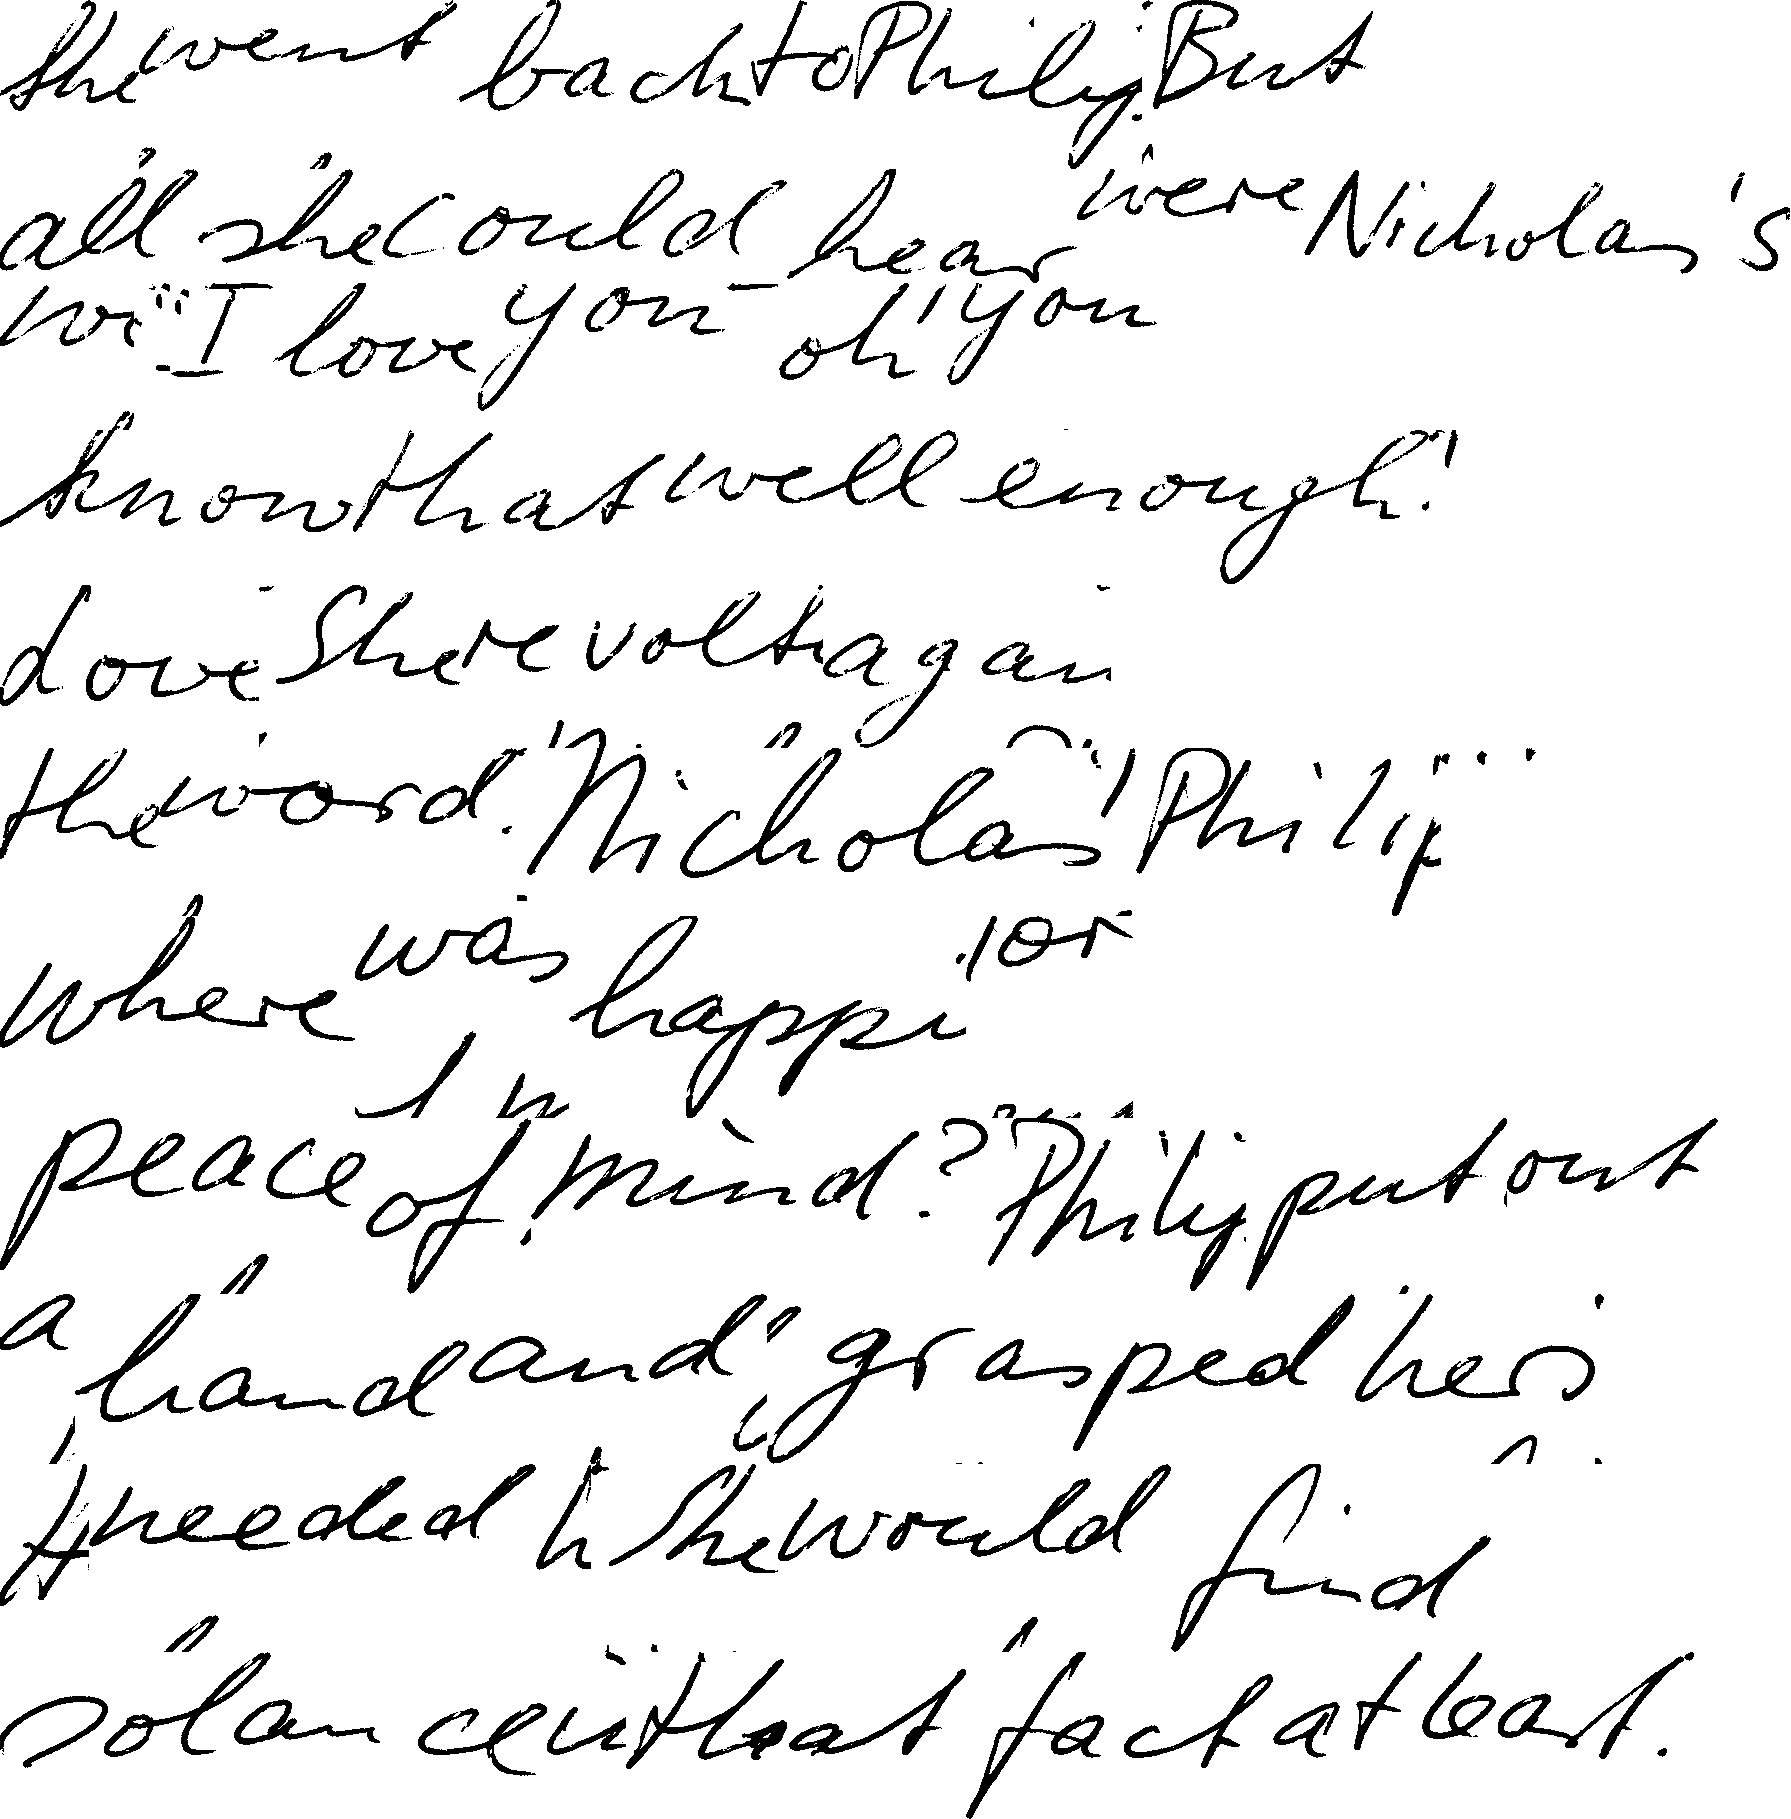 She went back to Philip. But
all she could hear were Nicholas's
"I love you - oh, you
know that well enough."
Love She revolts again
the word. Nicholas, Philip
where was happi , or
peace of mind? Philip put out
a hand and grasped hers
needed h She would find
solance in that fact at least.